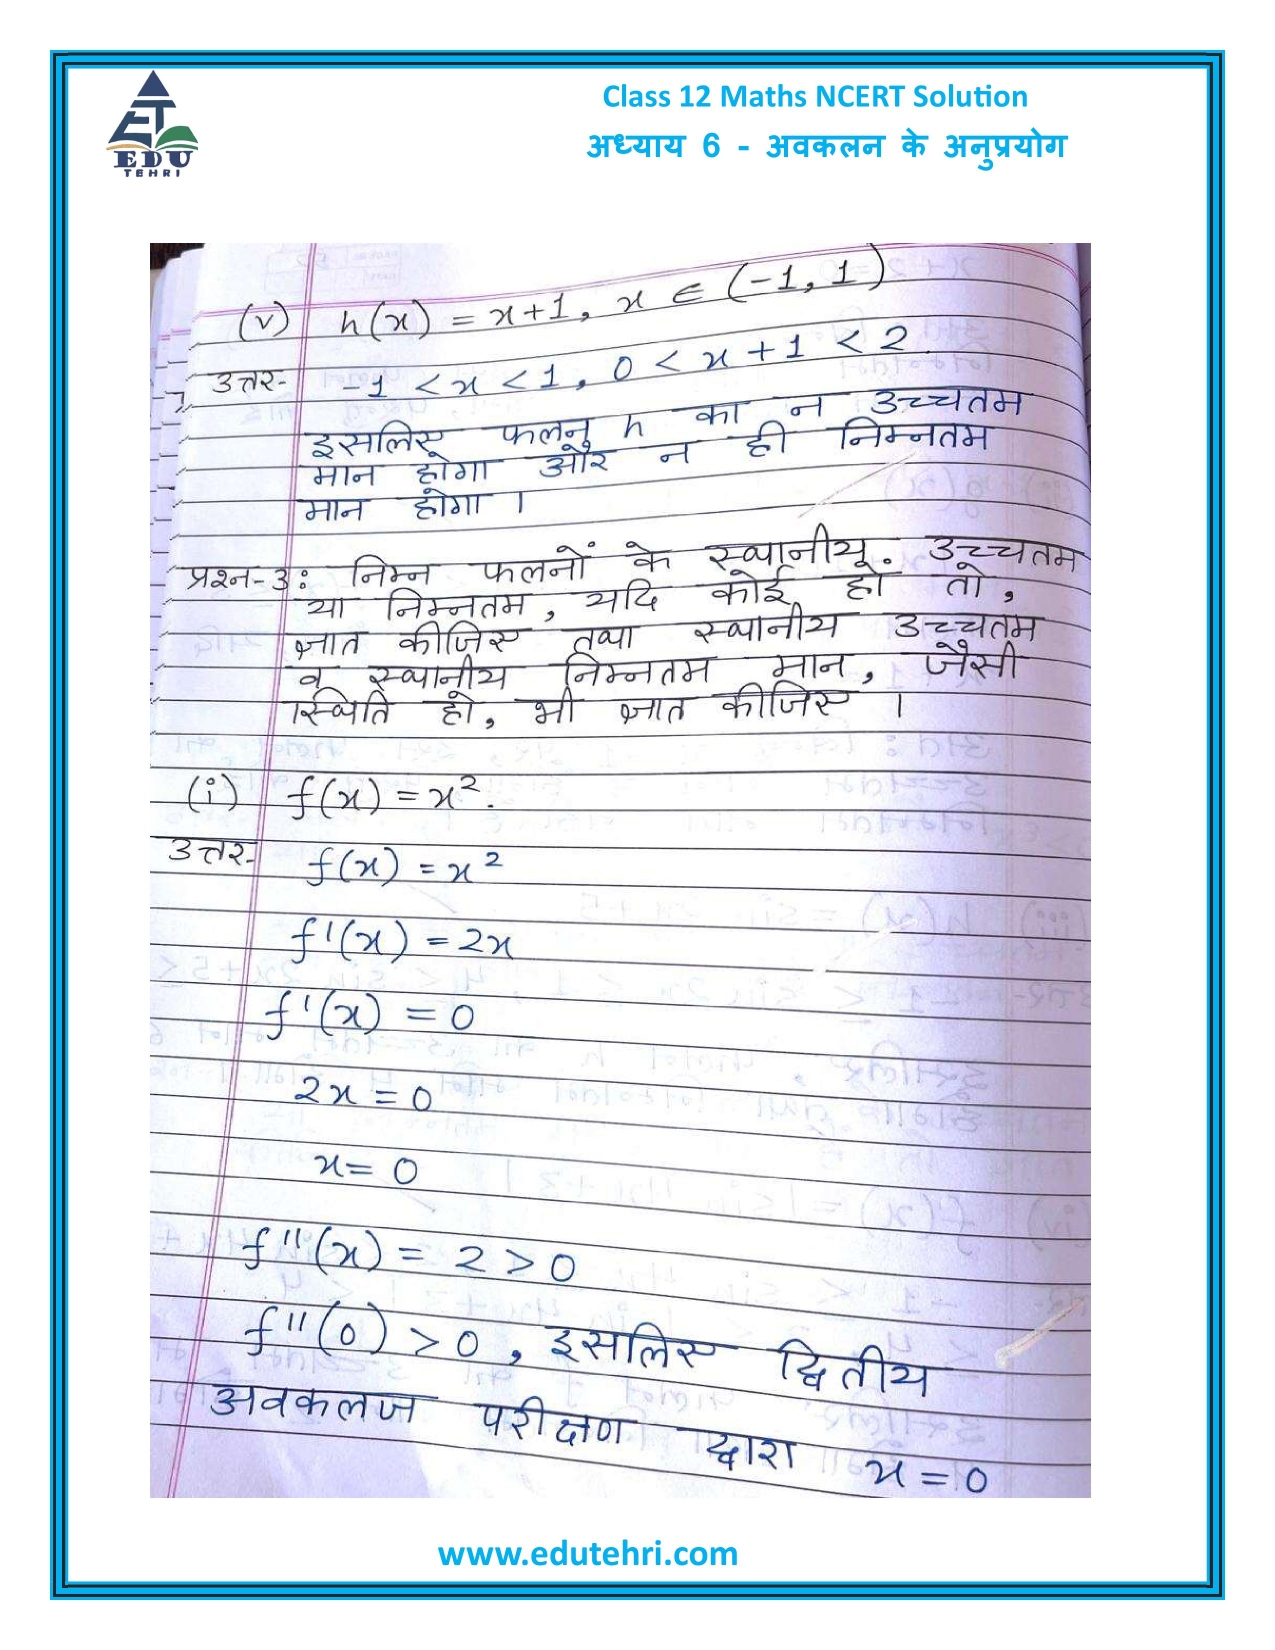 EDU
TEHRI
Class 12 Maths NCERT Solution
अध्याय 6 - अवकलन के अनुप्रयोग
(v) h(x) = x+1, x ∈ (-1, 1)
उत्तर- -1 < x < 1, 0 < x + 1 < 2
इसलिए फलन h का न उच्चतम
मान होगा और न ही निम्नतम
मान होगा ।
प्रश्न-3: निम्न फलनों के स्थानीय उच्चतम
या निम्नतम, यदि कोई हो तो,
ज्ञात कीजिए तथा स्थानीय उच्चतम
व स्थानीय निम्नतम मान, जैसी
स्थिति हो, भी ज्ञात कीजिए ।
(i) f(x) = x².
उत्तर- f(x) = x²
f'(x) = 2x
f'(x) = 0
2x = 0
x = 0
f''(x) = 2 > 0
f''(0) > 0, इसलिए द्वितीय
अवकलज परीक्षण द्वारा x = 0
www.edutehri.com